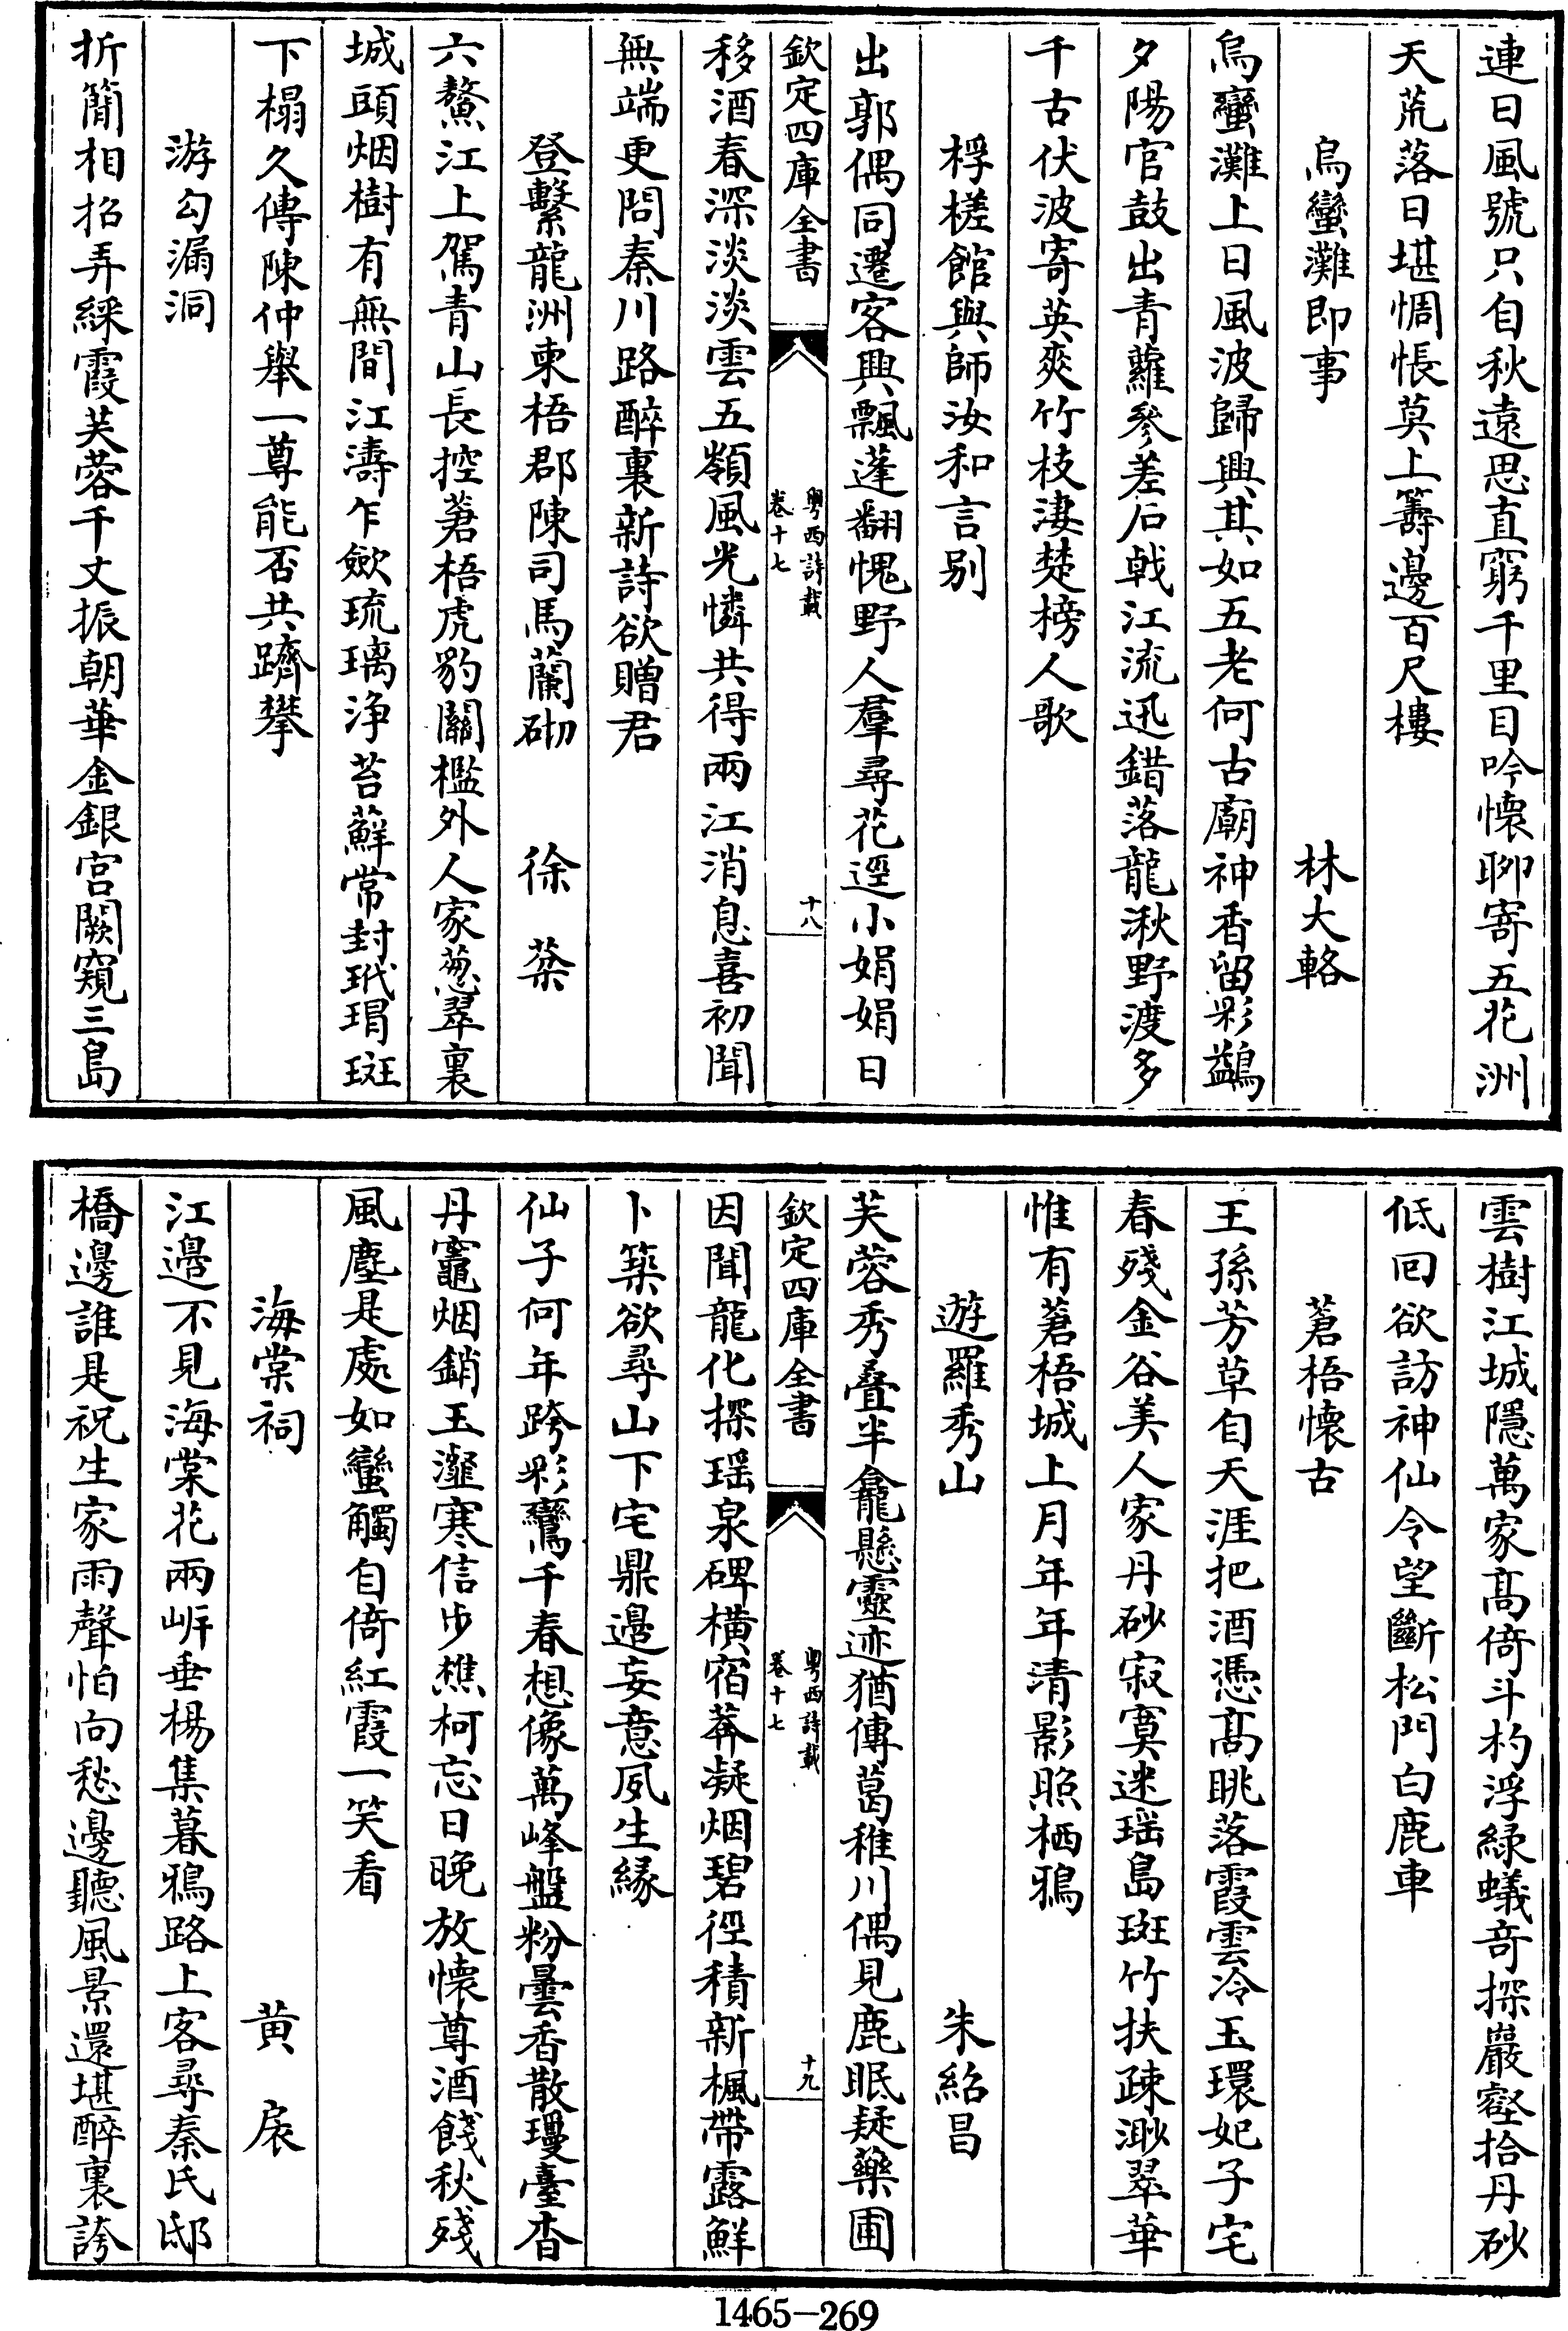 連日風號只自秋遠思直窮千里目吟懷聊寄五花洲
天荒落日堪惆悵莫上籌邊百尺樓
烏蠻灘即事　林大輅
烏蠻灘上日風波歸興其如五老何古廟神香留彩鷁
夕陽官鼓出青蘿參差石戟江流迅錯落龍湫野渡多
千古伏波寄英爽竹枝淒楚榜人歌
桴槎館與師汝和言别
出郭偶同遷客興飄蓬翻愧野人羣尋花逕小娟娟日
欽定四庫全書　粤西詩載卷十七　十八
移酒春深淡淡雲五嶺風光憐共得兩江消息喜初聞
無端更問秦川路醉裏新詩欲贈君
登繫龍洲柬梧郡陳司馬蘭砌　徐棻
六鰲江上駕青山長控蒼梧虎豹關檻外人家葱翠裏
城頭烟樹有無間江濤乍歛琉璃浄苔蘚常封玳瑁斑
下榻久傳陳仲舉一尊能否共躋攀
游勾漏洞
折簡相招弄綵霞芙蓉千丈振朝華金銀宫闕窺三島
雲樹江城隱萬家髙倚斗杓浮緑蟻竒探巖壑拾丹砂
低回欲訪神仙令望斷松門白鹿車
蒼梧懷古
王孫芳草自天涯把酒憑髙眺落霞雲冷玉環妃子宅
春殘金谷美人家丹砂寂寞迷瑶島斑竹扶疎渺翠華
惟有蒼梧城上月年年清影照栖鴉
遊羅秀山　朱紹昌
芙蓉秀叠半龕懸靈迹猶傳葛稚川偶見鹿眠疑藥圃
欽定四庫全書　粤西詩載卷十七　十九
因聞龍化探瑶泉碑横宿莽凝烟碧徑積新楓帶露鮮
卜築欲尋山下宅鼎邉妄意夙生緣
仙子何年跨彩鸞千春想像萬峰盤粉曇香散瓊臺杳
丹竈烟銷玉瀣寒信步樵柯忘日晚放懷尊酒餞秋殘
風塵是處如蠻觸自倚紅霞一笑看
海棠祠　黄扆
江邉不見海棠花兩岍垂楊集暮鴉路上客尋秦氏邸
橋邊誰是祝生家雨聲怕向愁邊聽風景還堪醉裏誇
1465-269